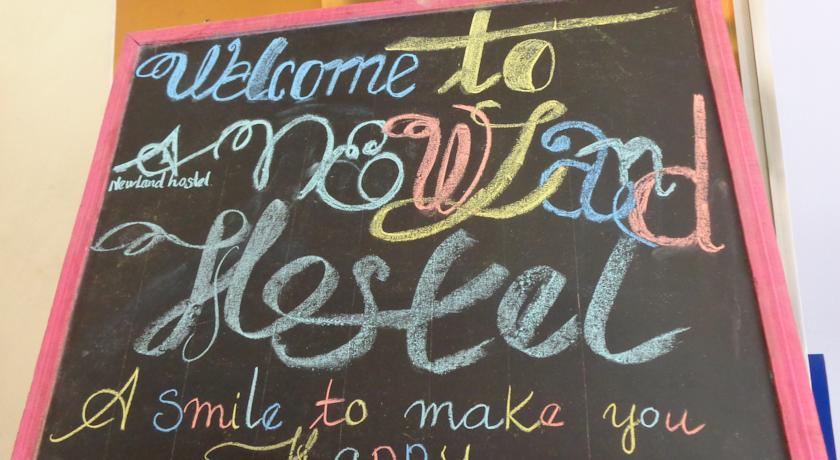 Welcome to
Newland hostel
NewLand
Hostel
A smile to make you
Happy